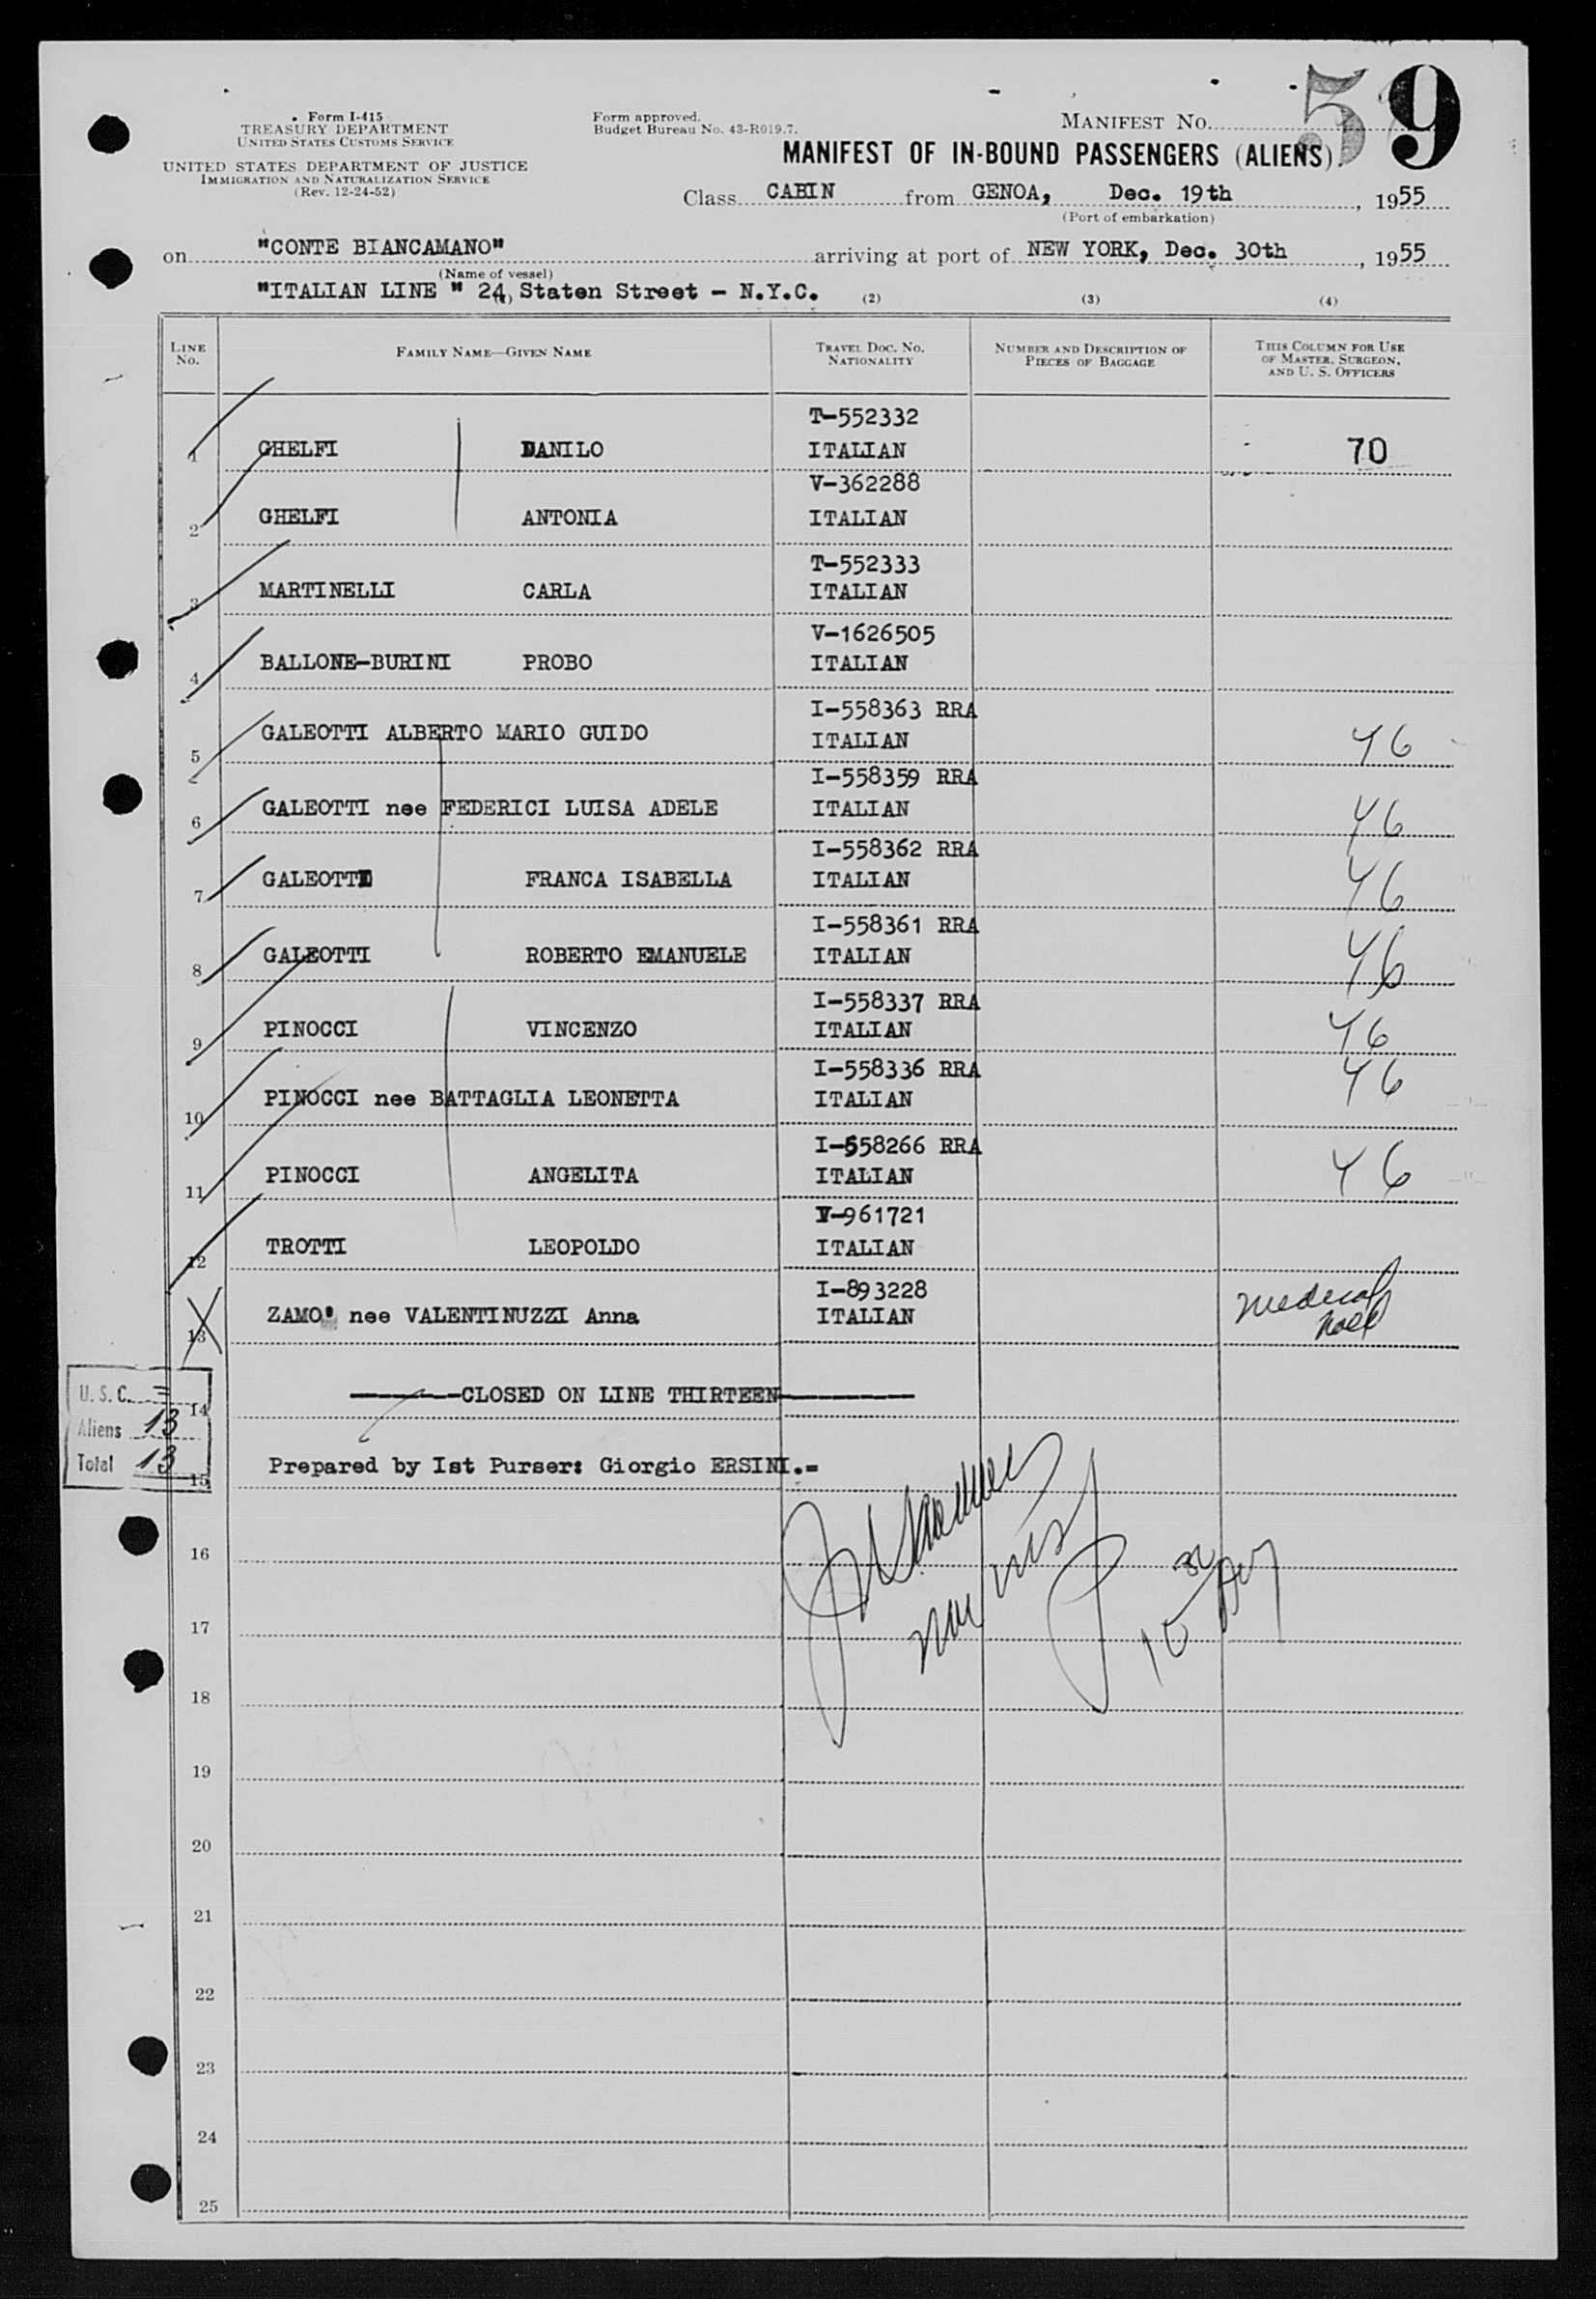 59
Form I-415
TREASURY DEPARTMENT
UNITED STATES CUSTOMS SERVICE
UNITED STATES DEPARTMENT OF JUSTICE
IMMIGRATION AND NATURALIZATION SERVICE
(Rev. 12-24-52)
Form approved.
Budget Bureau No. 43-R019.7.
MANIFEST NO.
MANIFEST OF IN-BOUND PASSENGERS (ALIENS)
Class CABIN from GENOA, Dec. 19th, 1955
(Port of embarkation)
on "CONTE BIANCAMANO" arriving at port of NEW YORK, Dec. 30th, 1955
(Name of vessel)
"ITALIAN LINE " 24, Staten Street - N.Y.C. (2) (3) (4)
LINE NO. FAMILY NAME—GIVEN NAME TRAVEL DOC. NO. NATIONALITY NUMBER AND DESCRIPTION OF PIECES OF BAGGAGE THIS COLUMN FOR USE OF MASTER, SURGEON, AND U. S. OFFICERS
T-552332
1 GHELFI DANILO ITALIAN 70
V-362288
2 GHELFI ANTONIA ITALIAN
T-552333
3 MARTINELLI CARLA ITALIAN
V-1626505
4 BALLONE-BURINI PROBO ITALIAN
I-558363 RRA
5 GALEOTTI ALBERTO MARIO GUIDO ITALIAN Y6
I-558359 RRA
6 GALEOTTI nee FEDERICI LUISA ADELE ITALIAN Y6
I-558362 RRA
7 GALEOTTI FRANCA ISABELLA ITALIAN Y6
I-558361 RRA
8 GALEOTTI ROBERTO EMANUELE ITALIAN Y6
I-558337 RRA
9 PINOCCI VINCENZO ITALIAN Y6
I-558336 RRA
10 PINOCCI nee BATTAGLIA LEONETTA ITALIAN Y6
I-558266 RRA
11 PINOCCI ANGELITA ITALIAN Y6
V-961721
12 TROTTI LEOPOLDO ITALIAN
I-893228
13 ZAMO' nee VALENTINUZZI Anna ITALIAN Medical Hold
U.S.C. =
14 -------CLOSED ON LINE THIRTEEN----------
Aliens 13
Total 13
15 Prepared by Ist Purser: Giorgio ERSINI.=
16
17
18
19
20
21
22
23
24
25